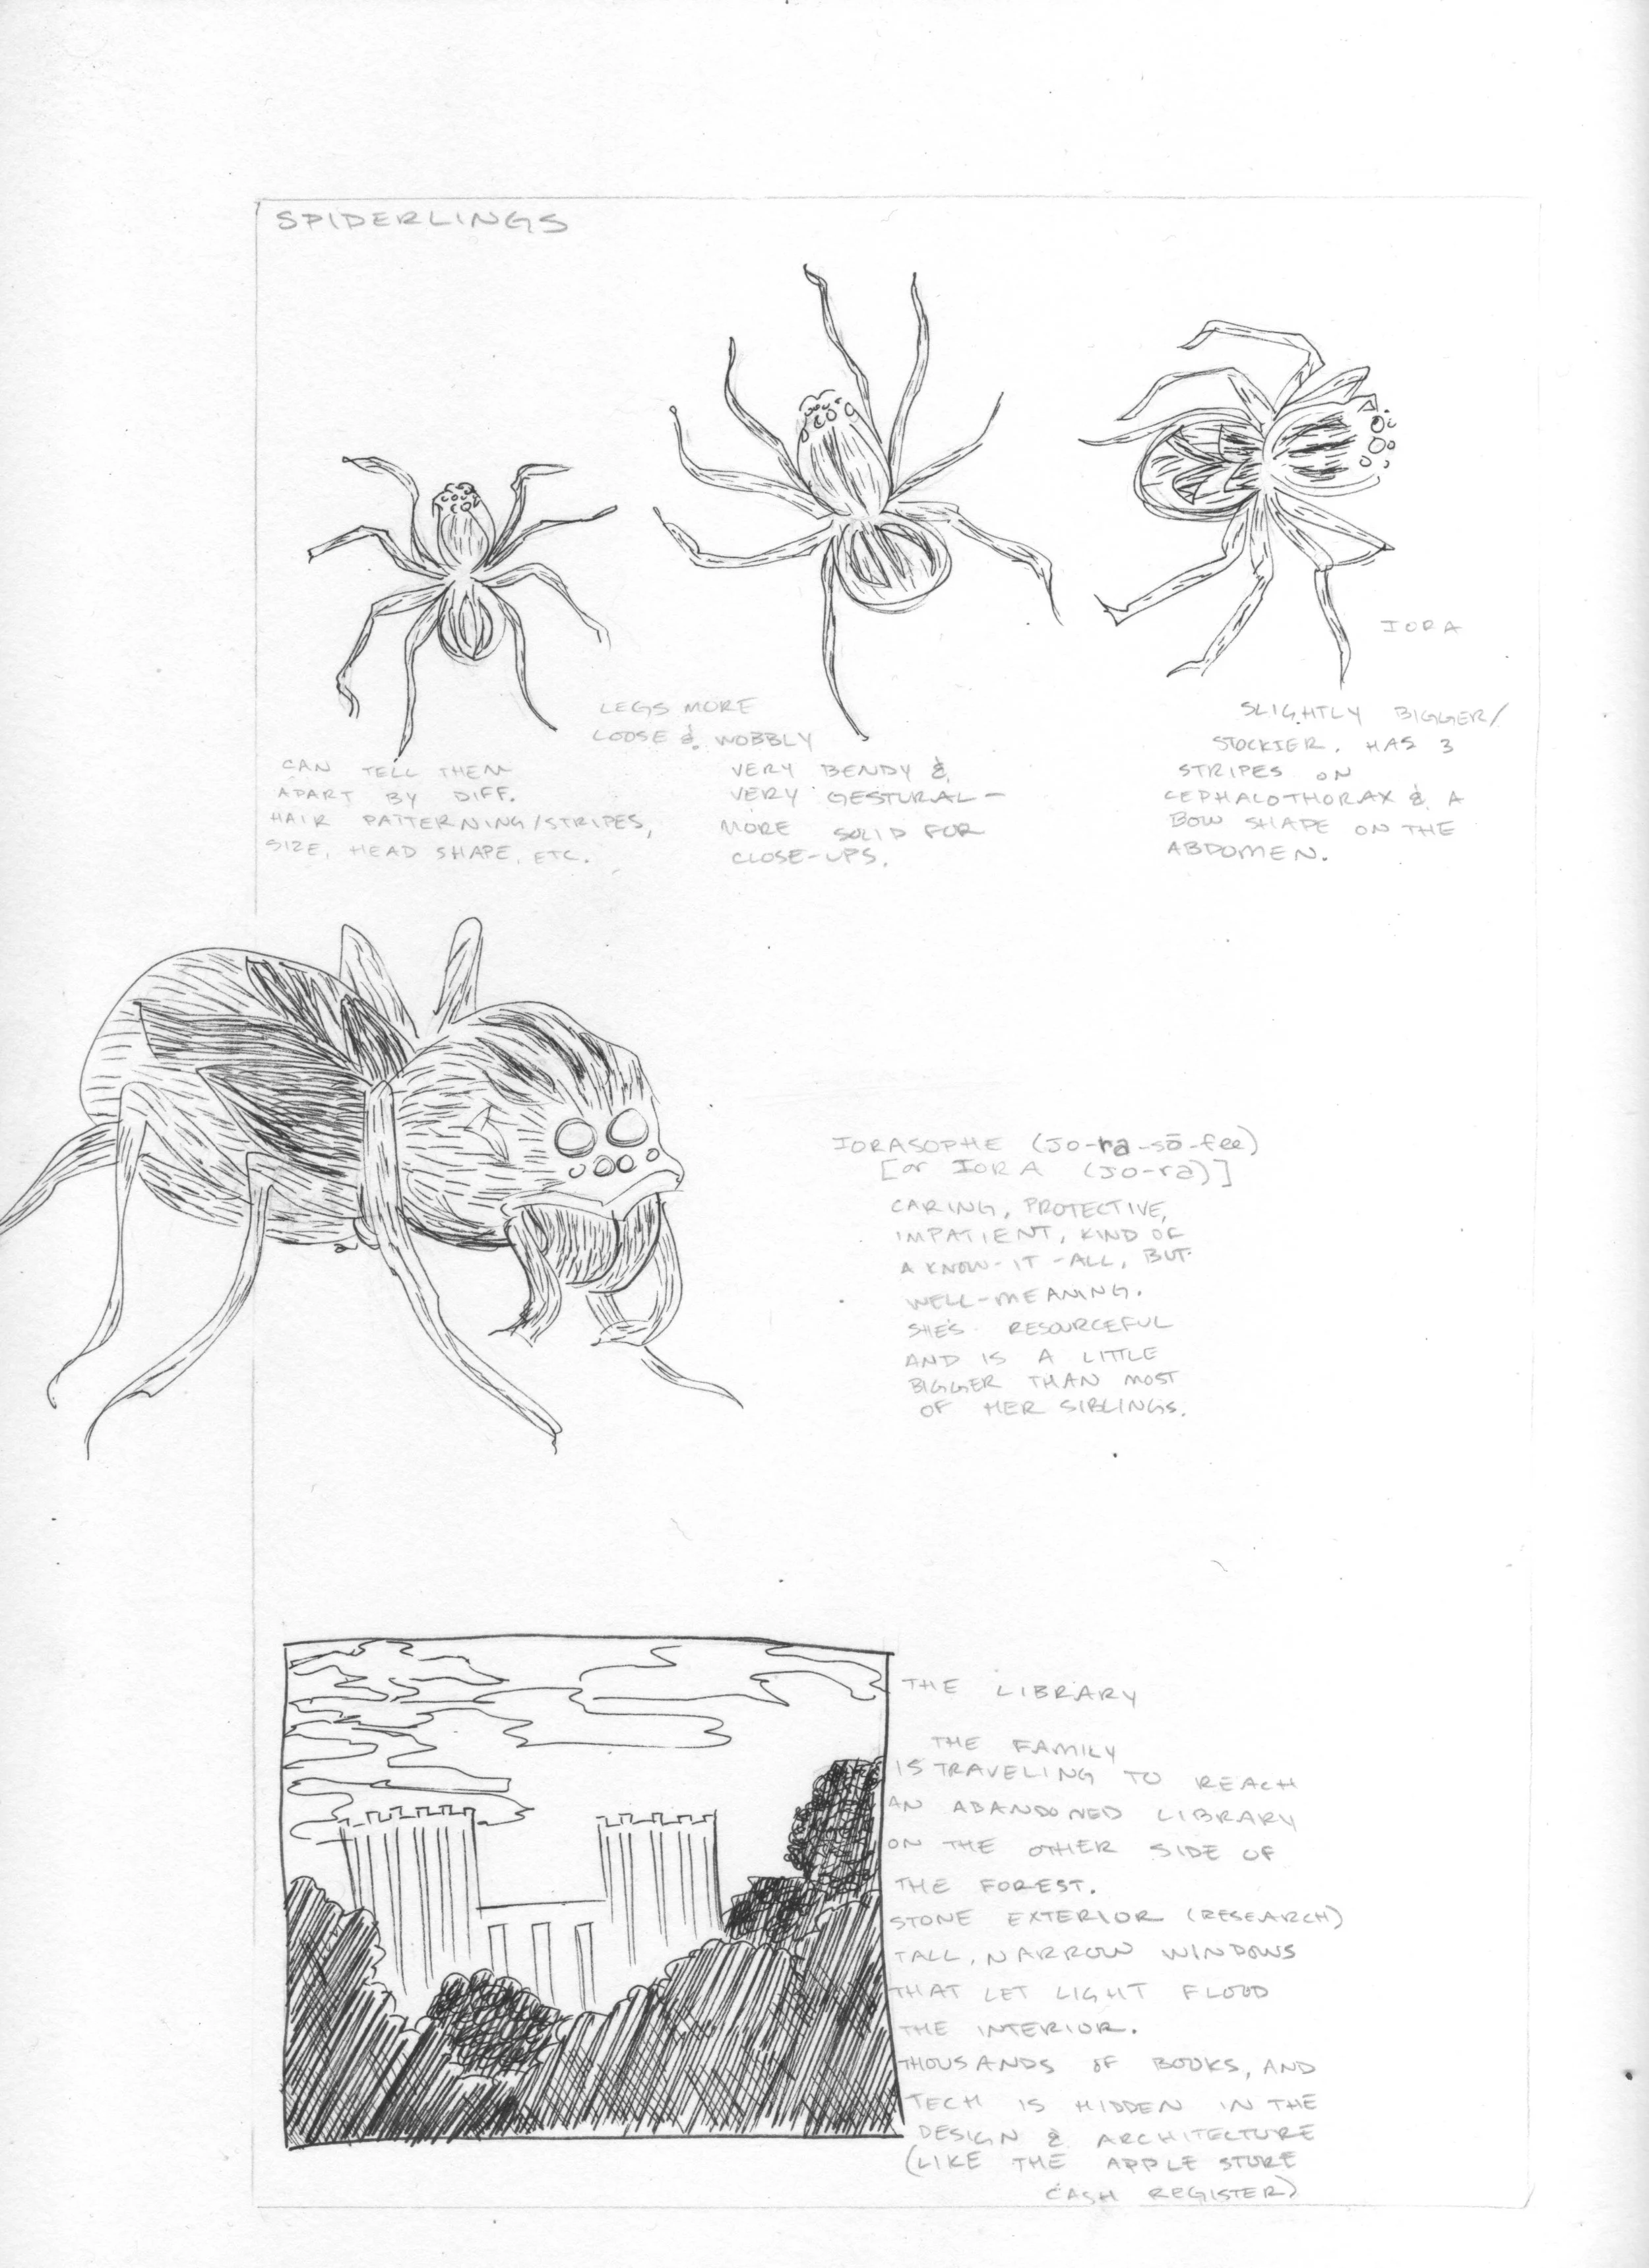 SPIDERLINGS
IORA
LEGS MORE
LOOSE & WOBBLY
CAN TELL THEM
APART BY DIFF.
HAIR PATTERNING/STRIPES,
SIZE, HEAD SHAPE, ETC.
VERY BENDY &
VERY GESTURAL-
MORE SOLID FOR
CLOSE-UPS.
SLIGHTLY BIGGER/
STOCKIER. HAS 3
STRIPES ON
CEPHALOTHORAX & A
BOW SHAPE ON THE
ABDOMEN.
IORASOPHE (Jo-ra-sō-fee)
[or IORA (Jo-ra)]
CARING, PROTECTIVE,
IMPATIENT, KIND OF
A KNOW-IT-ALL, BUT
WELL-MEANING.
SHE'S RESOURCEFUL
AND IS A LITTLE
BIGGER THAN MOST
OF HER SIBLINGS.
THE LIBRARY
THE FAMILY
IS TRAVELING TO REACH
AN ABANDONED LIBRARY
ON THE OTHER SIDE OF
THE FOREST.
STONE EXTERIOR (RESEARCH)
TALL, NARROW WINDOWS
THAT LET LIGHT FLOOD
THE INTERIOR.
THOUSANDS OF BOOKS, AND
TECH IS HIDDEN IN THE
DESIGN & ARCHITECTURE
(LIKE THE APPLE STORE
CASH REGISTER)